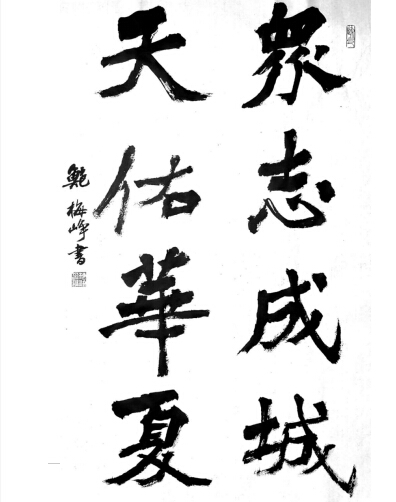 眾志成城
天佑華夏
鮑梅崢書